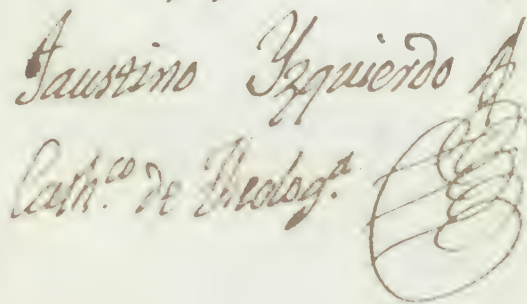 Faustino Yzquierdo
Cath.co de Theolog.a